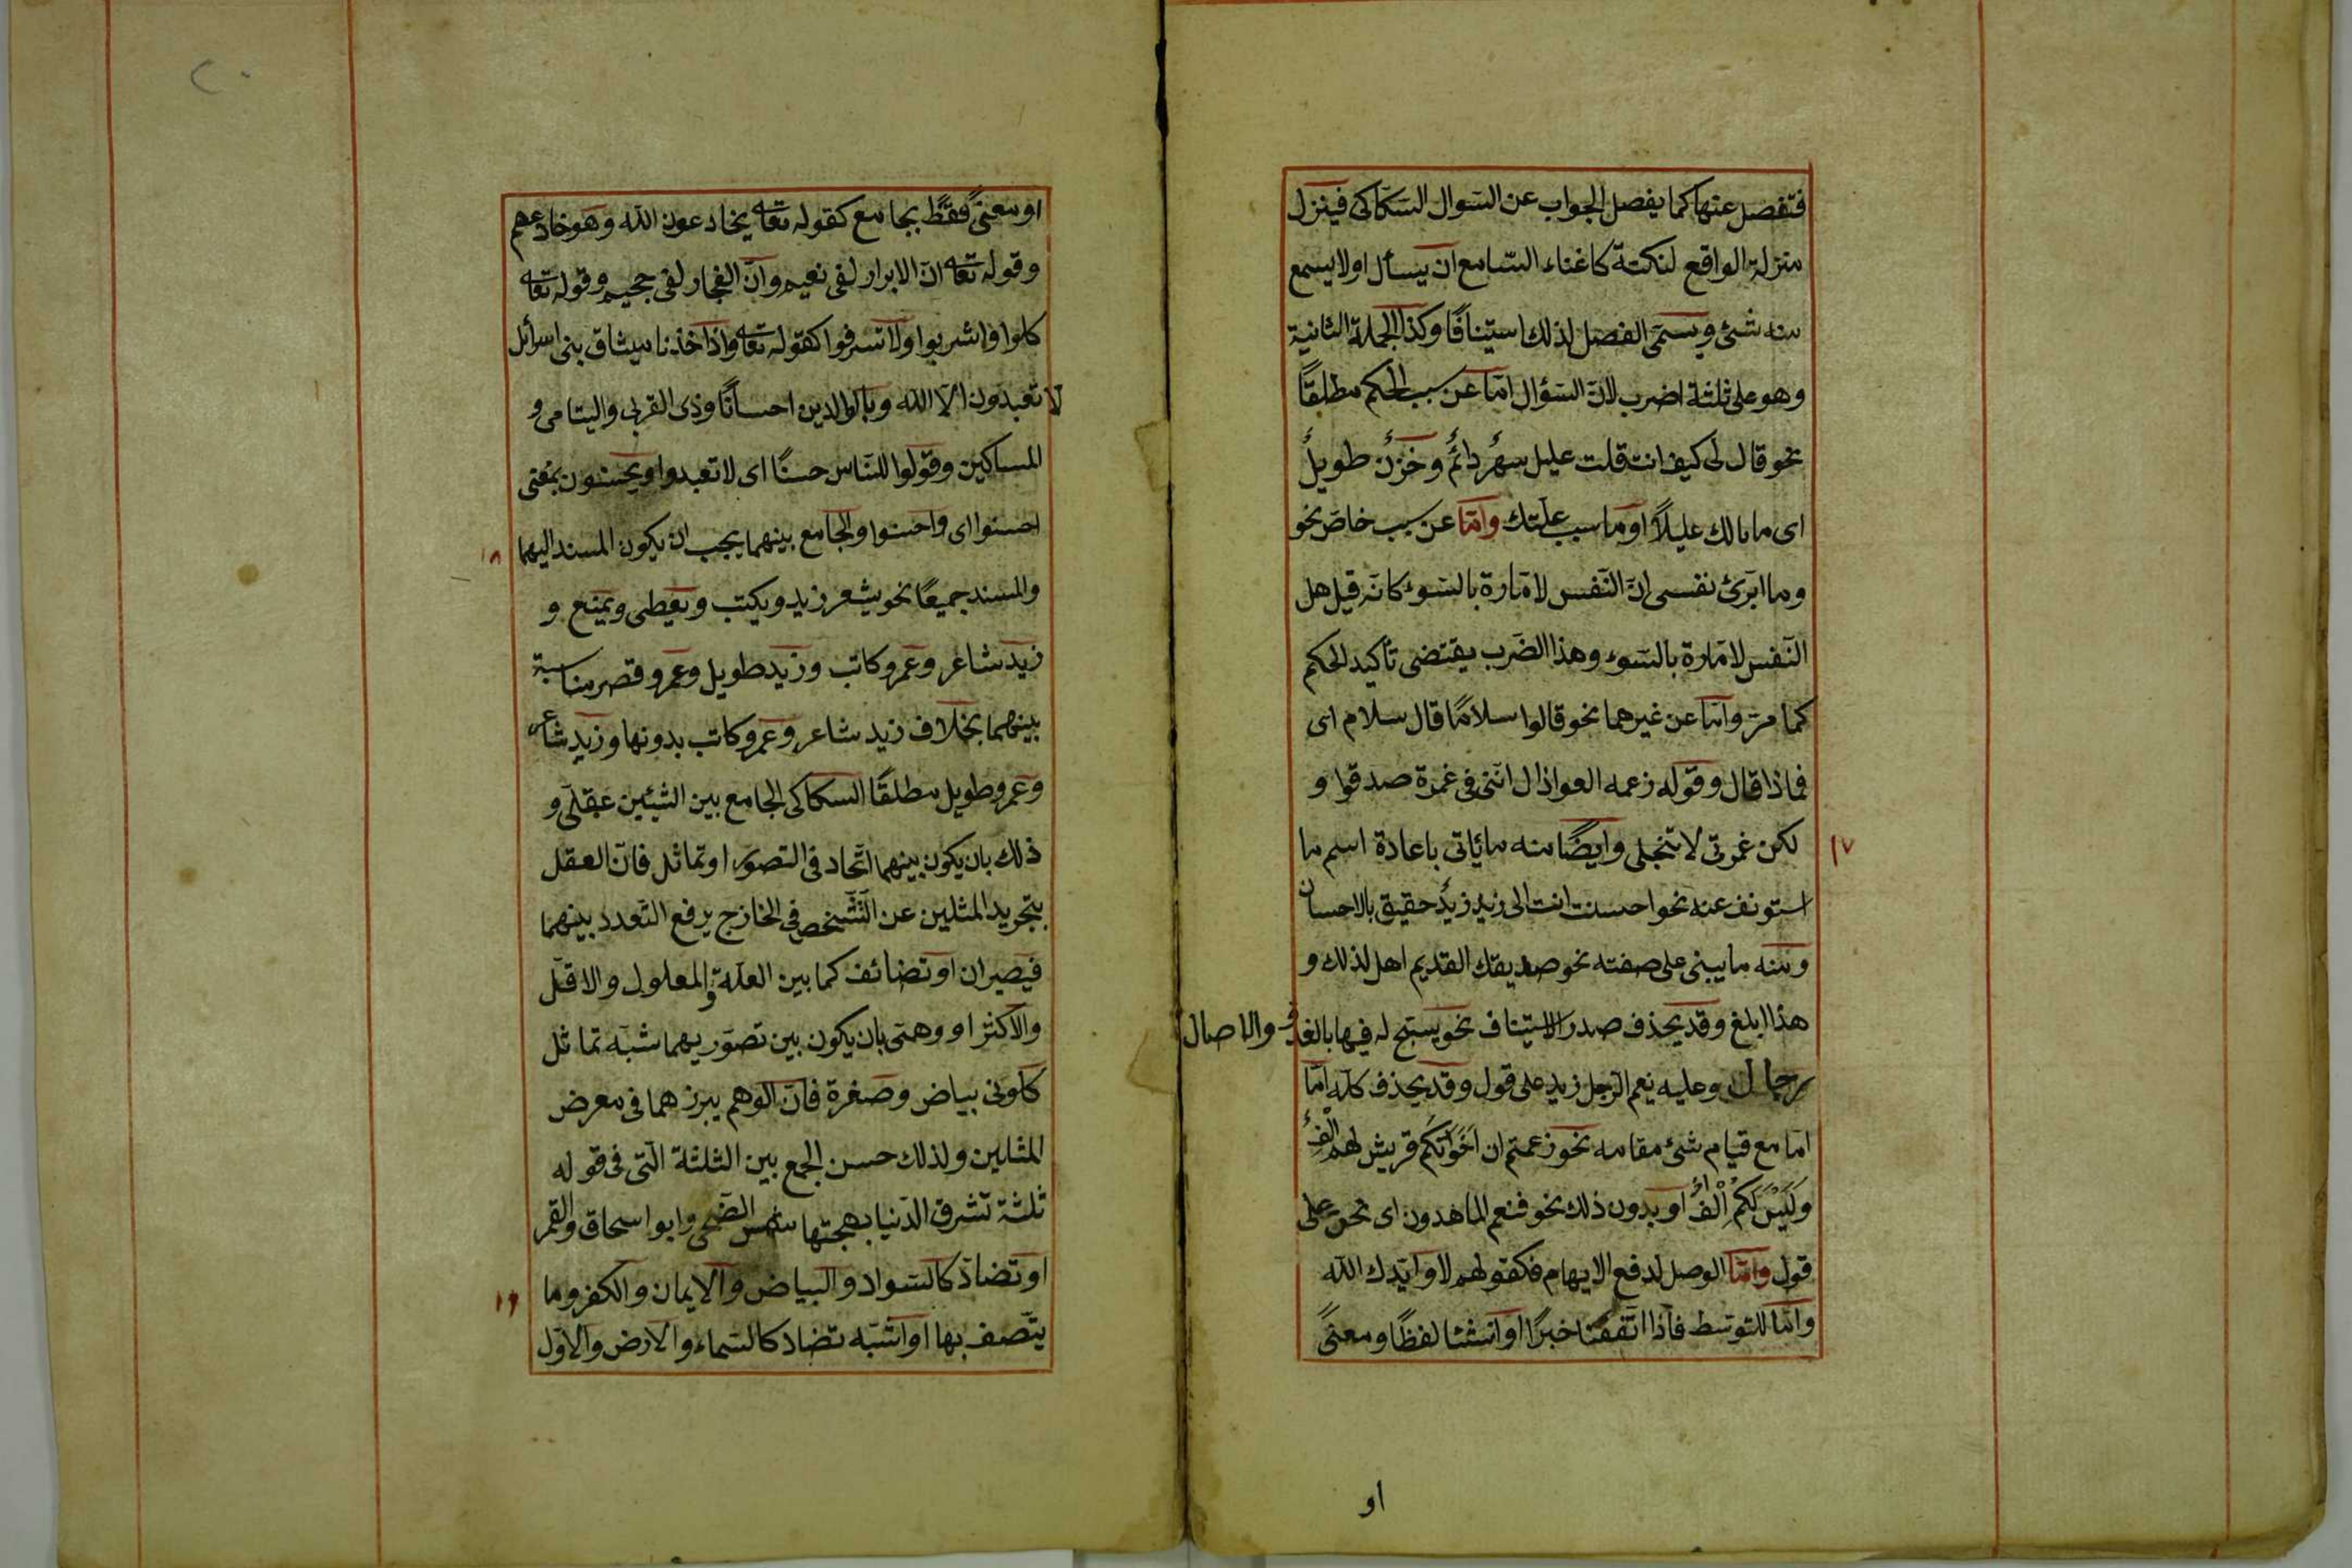 فتفصل عنها كما يفصل الجواب عن السوال السّكاكى فينزل
منزلة الواقع لنكتة كاغناء السّامع ان يسأل او لا يسمع
منه شئ ويسمّى الفصل لذلك استينافًا وكذا الجملة الثانية
وهو على ثلثة اضرب لانّ السّؤال امّا عن سبب الحكم مطلقًا
نحو قال لى كيف انت قلت عليل سهرٌ دائمٌ وحَزنٌ طويلٌ
اى ما بالك عليلاً او ما سبب علّتك وامّا عن سبب خاصّ نحو
وما ابرّئ نفسى انّ النّفس لامّارة بالسّوء كانّه قيل هل
النّفس لامّارة بالسّوء وهذا الضّرب يقتضى تأكيد الحكم
كما مرّ وامّا عن غيرهما نحو قالوا سلامًا قال سلام اى
فماذا قال وقوله زعمه العواذال انّنى فى غمرة صدقوا و
لكن غمرتى لا تنجلى وايضًا منه ما يأتى باعادة اسم ما
١٧
استونف عنه نحو احسنت انت الى زيد زيدٌ حقيق بالاحسان
ومنه ما يبنى على صفته نحو صديقك القديم اهل لذلك و
هذا ابلغ وقد يحذف صدر الاستيناف نحو يسبّح له فيها بالغدو والاصال
رجال وعليه نعم الرّجل زيد على قول وقد يحذف كلّه امّا
امّا مع قيام شئ مقامه نحو زعمتم ان اَخَوَاتكم قريش لهم اِلْفٌ
وَلَيْسَ لَكُمْ اِلْفٌ او بدون ذلك نحو فنعم الماهدون اى نحن على
قول وامّا الوصل لدفع الايهام فكقولهم لا وايّدك الله
وامّا للتوسّط فاذا اتّفقتا خبرًا او انشئا لفظًا ومعنىً
او
٢٠
او معنىً فقط بجامع كقوله تعا يخادعون الله وهو خادعهم
وقوله تعا انّ الابرار لفى نعيم وانّ الفجار لفى جحيم وقوله تعا
كلوا واشربوا ولا تسرفوا كقوله تعا واذا خذنا ميثاق بنى اسرائل
لا تعبدون الّا الله وبالوالدين احسانًا وذى القربى واليتامى و
المساكين وقولوا للنّاس حسنًا اى لا تعبدوا وتحسنون بمعنى
احسنوا اى واحسنوا والجامع بينهما يجب ان يكون المسند اليهما
١٨
والمسند جميعًا نحو يشعر زيد ويكتب ويعطى ويمنع و
زيد شاعر وعمرو كاتب وزيد طويل وعمرو قصير مناسبة
بينهما بخلاف زيد شاعر وعمرو كاتب بدونها وزيد شاعر
وعمرو طويل مطلقًا السكاكى الجامع بين الشيئين عقلى و
ذلك بان يكون بينهما اتّحاد فى التصوّر او تماثل فانّ العقل
بتجريد المثلين عن التّشخص فى الخارج يرفع التّعدد بينهما
فيصيران او تضائف كما بين العلّة والمعلول والاقلّ
والاكثر او وهمى بان يكون بين تصوّريهما شبه تماثل
كلونى بياض وصفرة فانّ الوهم يبرزهما فى معرض
المثلين ولذلك حسن الجمع بين الثلثة الّتى فى قوله
ثلثة تشرق الدّنيا بهجتها شمس الضّحى وابو اسحاق والقمر
او تضادّ كالسّواد والبياض والايمان والكفر وما
١٩
يتّصف بها او شبه تضاد كالسّماء والارض والاوّل